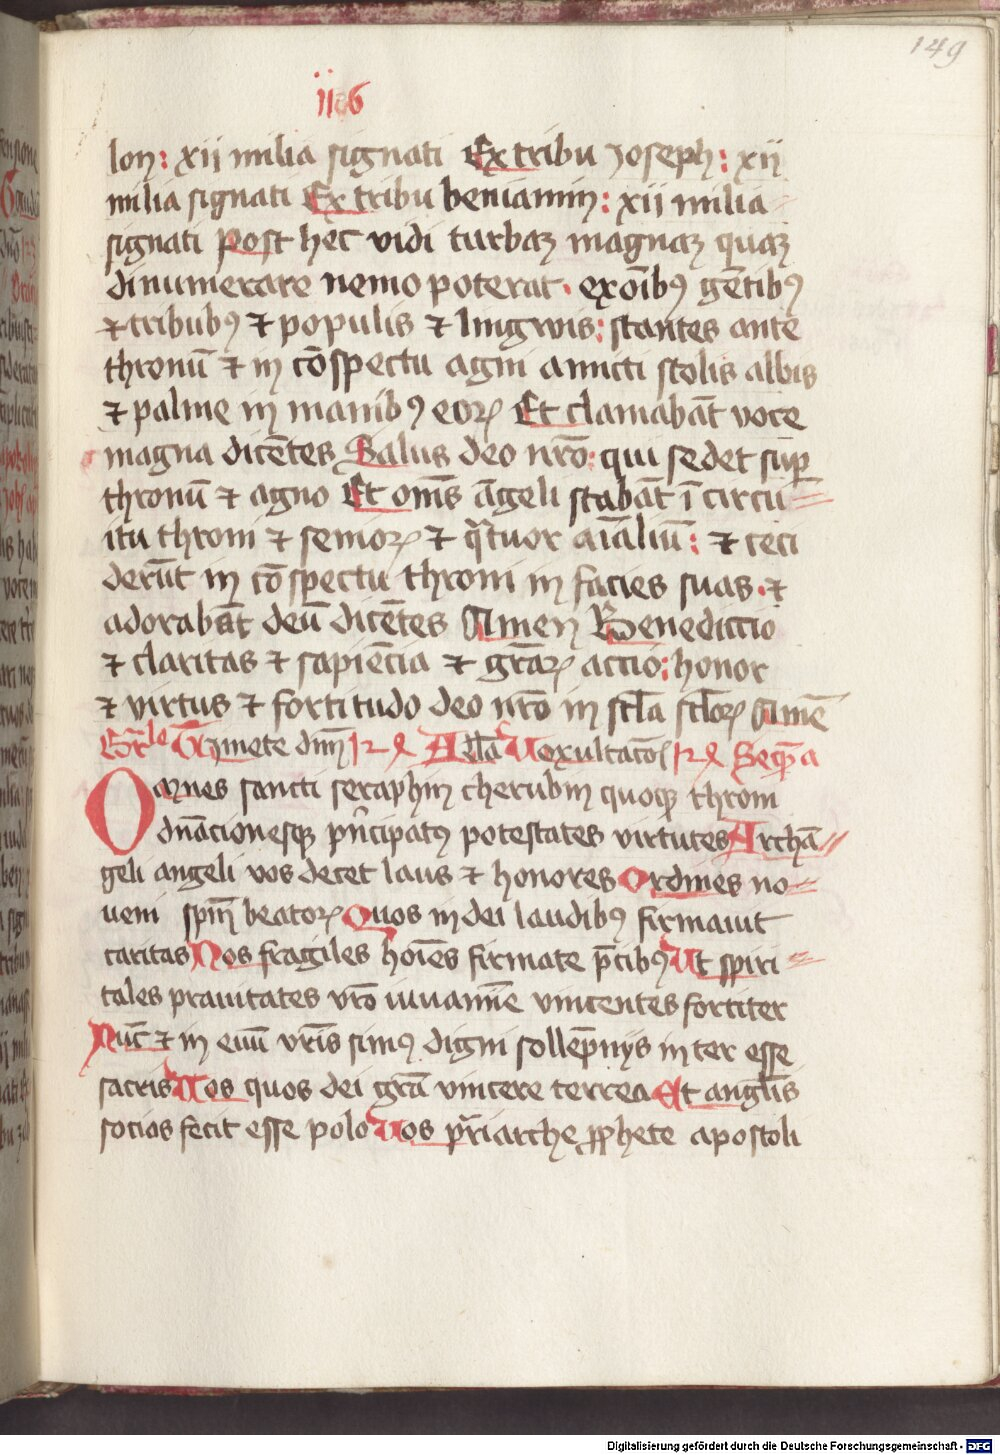 149
116
lon: xii milia signati Ex tribu Joseph: xij
milia signati Ex tribu beniamin: xii milia
signati Post hec vidi turbaꝫ magnaꝫ quaꝫ
dinumerare nemo poterat. ex oı̄bꝰ gētibꝰ
⁊ tribubꝰ ⁊ populis ⁊ lingwis: stantes ante
thronū ⁊ in cōspectu agni amicti stolis albis
⁊ palme in manibꝰ eoꝝ Et clamabāt voce
magna dicētes Salus deo nr̄o: qui sedet sup̄
thronū ⁊ agno Et om̄s āgeli stabāt ī circu
itu throni ⁊ senioꝝ ⁊ qͣtuor aı̄aliū: ⁊ ceci
derūt in cōspectu throni in facies suas. ⁊
adorabāt deū dicētes Amen Benedictio
⁊ claritas ⁊ sapiēcia ⁊ gr̄aꝝ actio: honor
⁊ virtus ⁊ fortitudo deo nr̄o in sc̄la sc̄loꝝ Amē
Gr̄le Timete dn̄m Alla Vexultacō Seqn̄a
Omnes sancti seraphin cherubin quoqꝫ throni
dn̄acionesqꝫ pͥncipatꝰ potestates virtutes Archā
geli angeli vos decet laus ⁊ honores Ordines no
ueni spūū beatoꝝ Quos in dei laudibꝰ firmauit
caritas Nos fragiles hoı̄es firmate p̄cibꝰ Ut spiri
tales prauitates vr̄o iuuamīe vincentes fortiter
Nūc ⁊ in euū vr̄is simꝰ digni sollēpnijs inter esse
sacris Vos quos dei gr̄a vincere terrea Et angl̄is
socios fecit esse polo Vos pr̄iarche ꝓphete apostoli
Digitalisierung gefördert durch die Deutsche Forschungsgemeinschaft - DFG